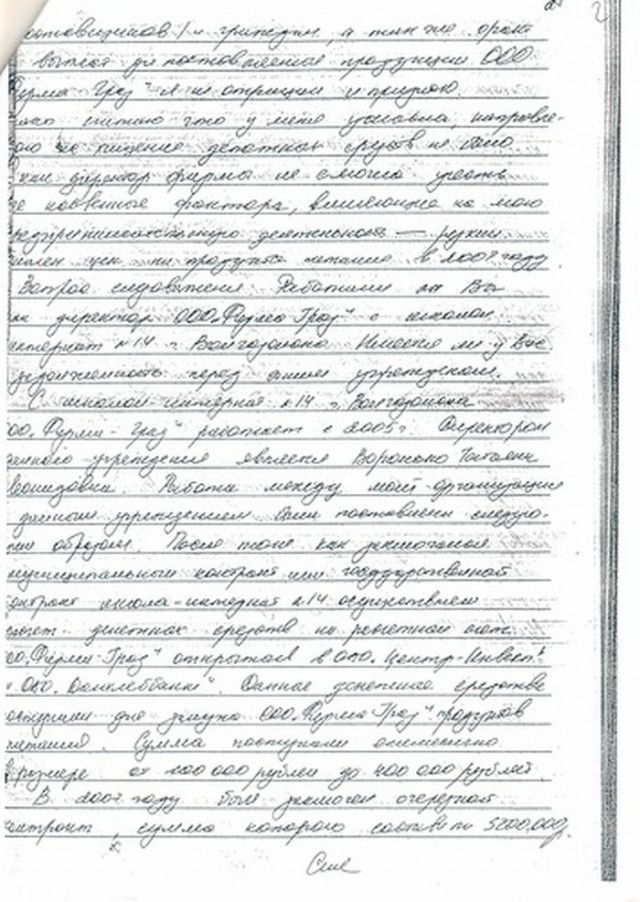 а так же сроки
выплат за поставляемая продукции ООО
Фирма Граз" я не отрицаю и признаю.
считаю что у меня умысла, направле-
на хищение денежных средств не было
как директор фирмы не смогла учесть
все косвенные факторы, влияющие на мою
предпринимательскую деятельность — резкий
цен на продукты питания в 2007 году.
Вопрос следователя: Работали ли Вы
как директор ООО „Фирма Граз" с школой
интернат №14 г. Волгодонска. Имеется ли у Вас
задолженность перед данным учреждением.
С школой интернат №14 г. Волгодонска
ООО „Фирма-Граз" работает с 2005 г. Директором
данного учреждения является
Работа между моей организации
данным учреждением была поставлена следую-
щим образом. После того как заключался
муниципальный контракт или государственной
контракт школа-интернат №14 осуществляет
денежных средств на расчетный счет
ООО „Фирма-Граз" открытой в ОАО „Центр-Инвест"
и ОАО „Донхлеббанк". Данные денежные средства
поступали для закупа ООО „Фирма-Граз" продуктов
питания. Суммы поступали ежемесячно
в размере от 200 000 рублей до 400 000 рублей.
В 2007 году был заключен очередной
контракт, сумма которого составила 5200.000р.